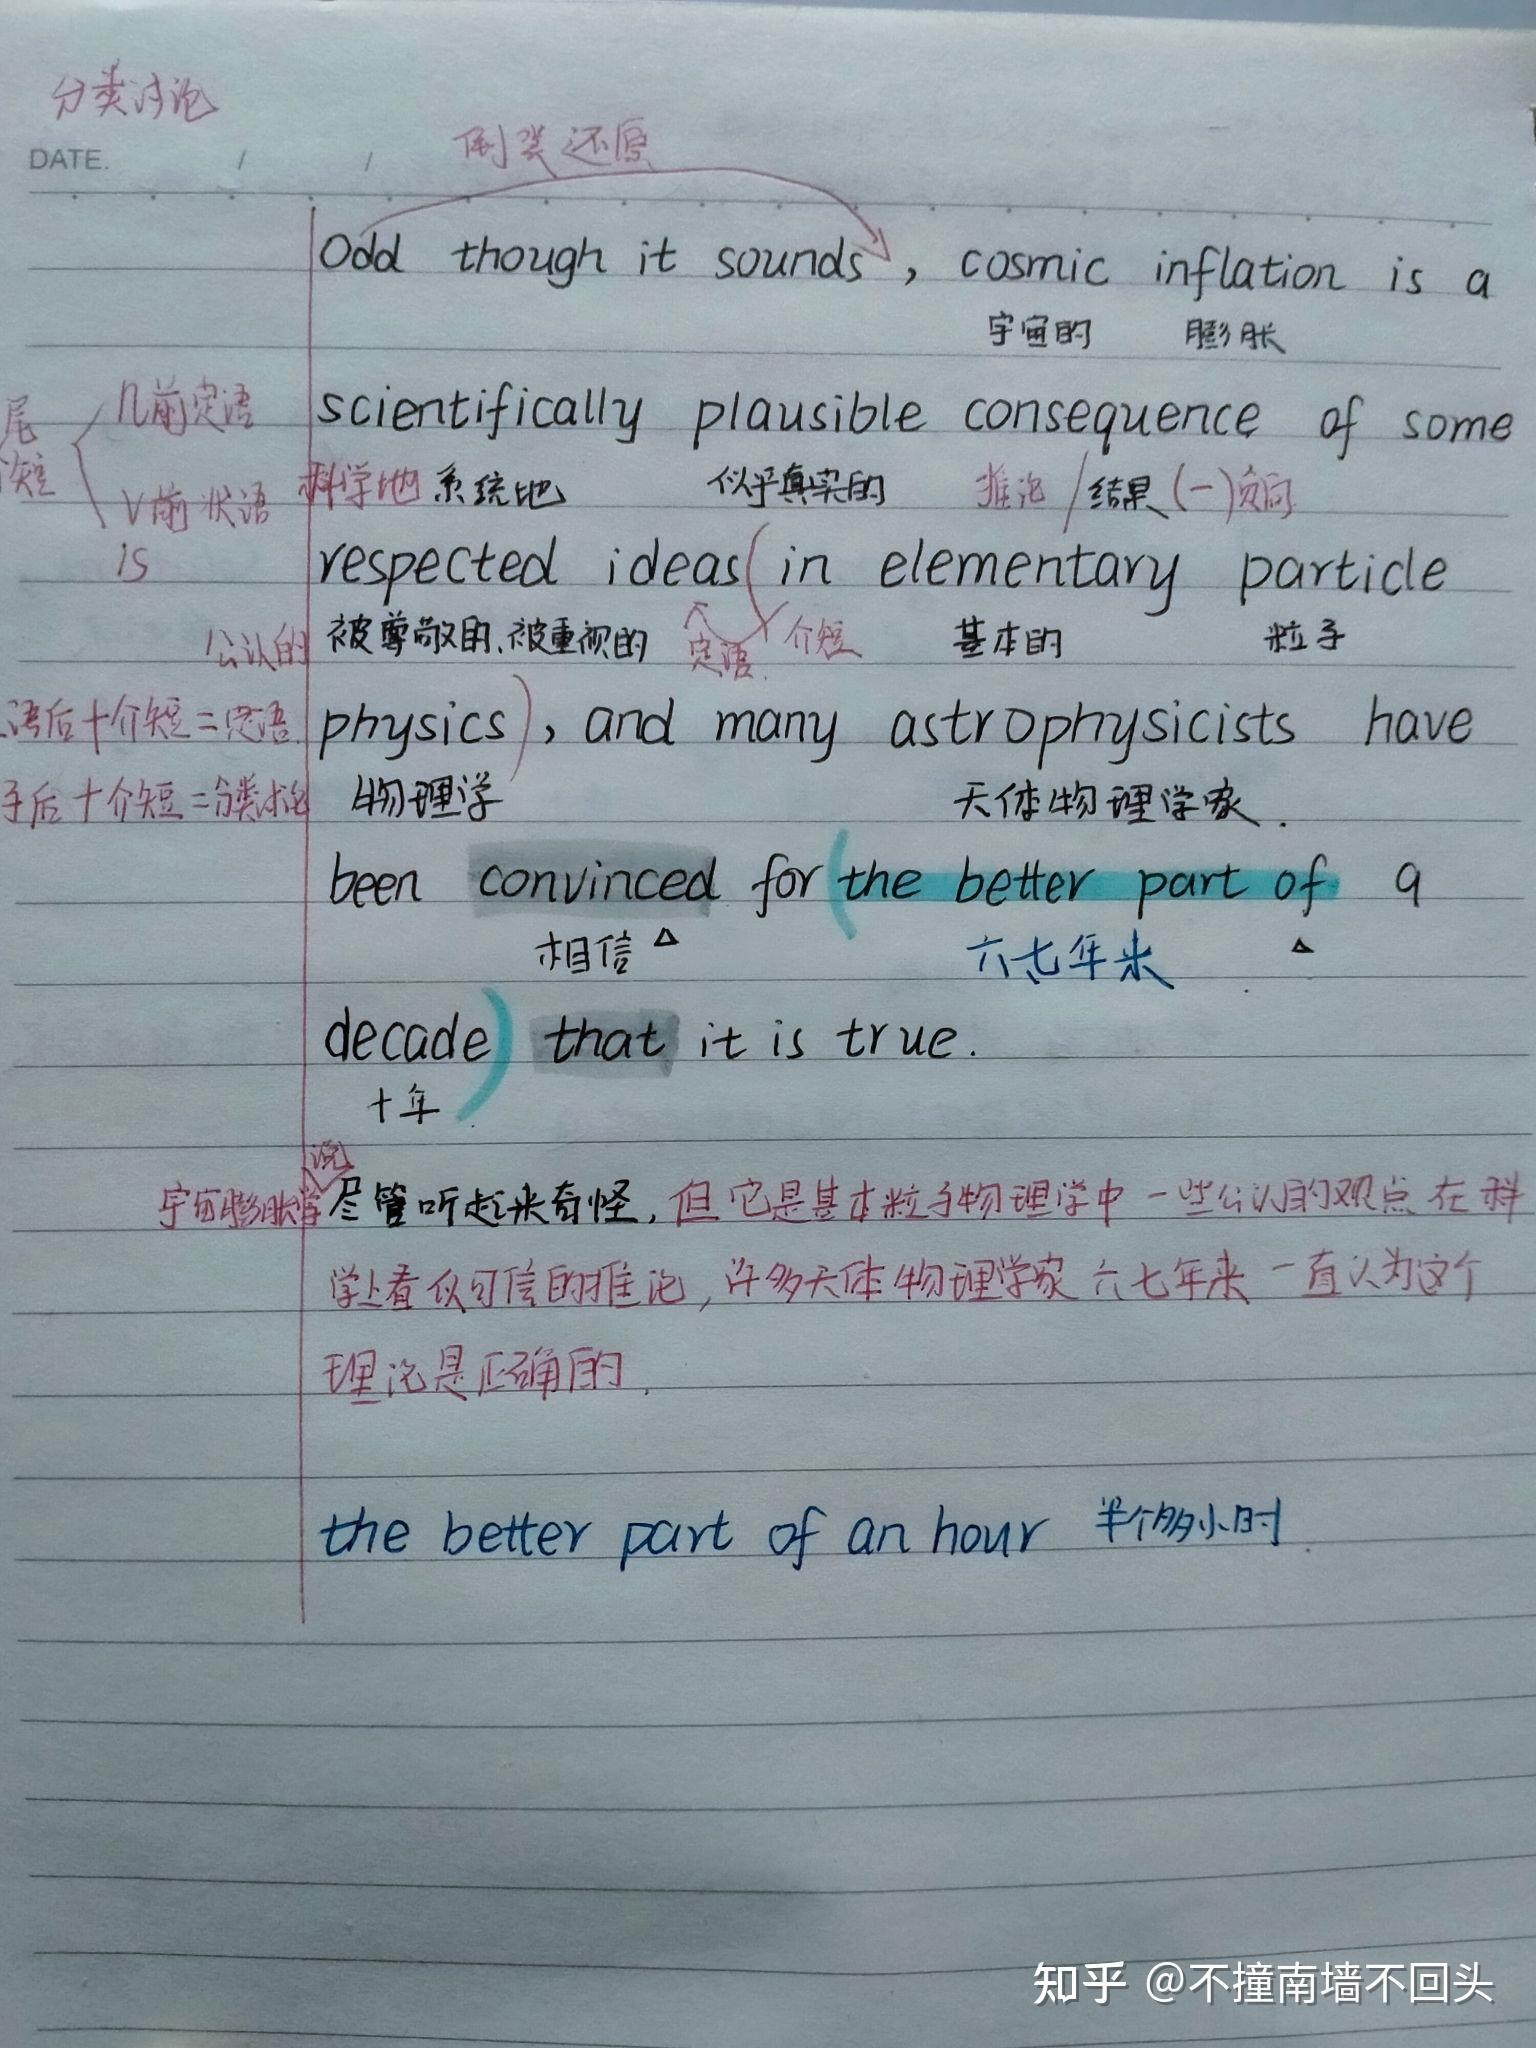 分类讨论
DATE. / /
倒装还原
Odd though it sounds, cosmic inflation is a
宇宙的 膨胀
n前定语
scientifically plausible consequence of some
尾
短
V前状语
科学地 系统地 似乎真实的 推论/结果(一)负向
is
respected ideas (in elementary particle
公认的 被尊敬的、被重视的 定语 介短 基本的 粒子
语后十介短=定语 physics), and many astrophysicists have
后十介短=分类讨论 物理学 天体物理学家.
been convinced for (the better part of a
相信 △ 六七年来 △
decade) that it is true.
十年
说
宇宙膨胀学 尽管听起来奇怪, 但它是基本粒子物理学中一些公认的观点在科
学上看似可信的推论, 许多天体物理学家六七年来一直认为这个
理论是正确的.
the better part of an hour 半个多小时
知乎 @不撞南墙不回头